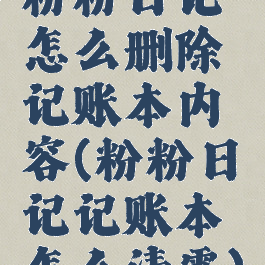 粉粉日记
怎么删除
记账本内
容(粉粉日
记记账本
怎么清零)